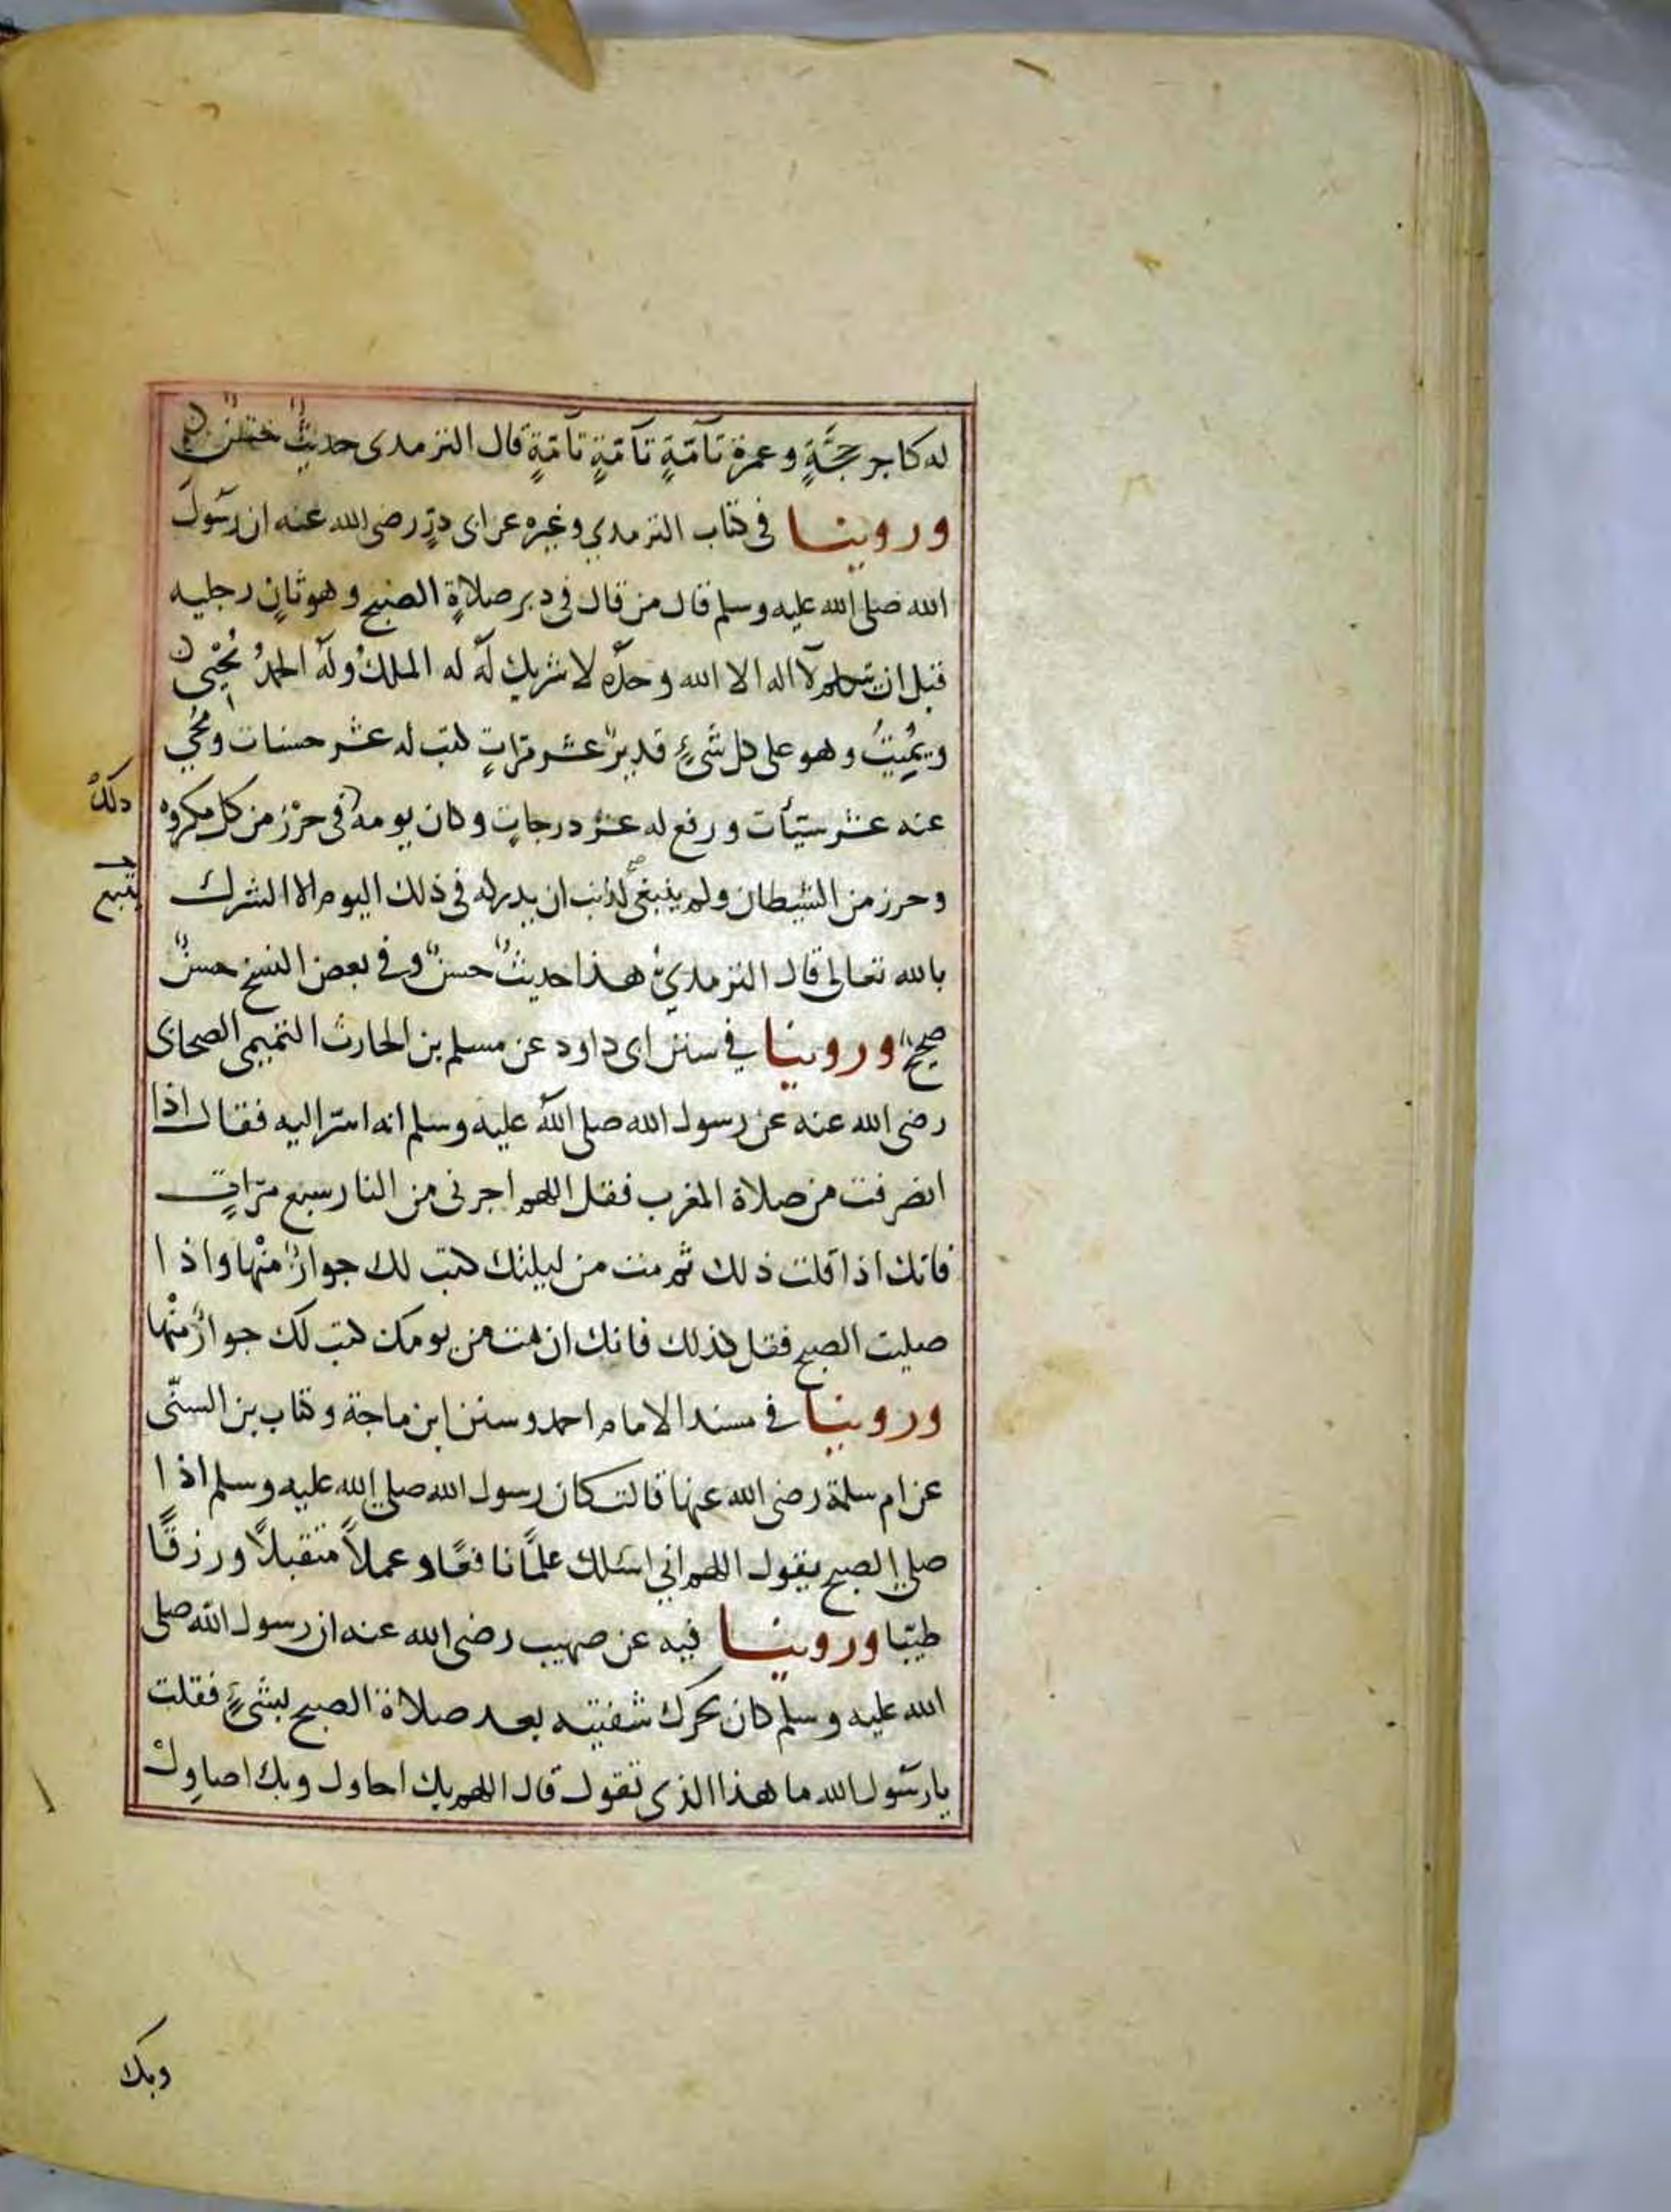 له كاجر حجَّةٍ وعمرة تآمّةٍ تآمّةٍ تامّةٍ قال الترمدى حديثٌ حسنٌ
وروينا فى كتاب الترمدي وغيره عن ابى درٍ رضى الله عنه ان رسولَ
الله صلى الله عليه وسلم قال من قال فى دبر صلاةِ الصبح وهو ثانٍ رجليه
قبل ان يتكلم لآ اله الا الله وحده لا شريك لَه له الملكُ ولَهُ الحمدُ يُحْيى
ويُمِيتُ وهو على كل شىءٍ قديرٌ عشر مرّاتٍ كتب له عشر حسنات ومُحِي
عنه عشر سيّأت ورفع له عشرُ درجاتٍ وكان يومه فى حرْز من كل مكروه
دلكْ
وحرز من الشيطان ولم ينبغى لذنب ان يدركه فى ذلك اليوم الا الشرك
يتبع
بالله تعالى قال الترمديُ هذا حديثٌ حسنٌ وفى بعض النسخ حسنٌ
صحيحٌ وروينا فى سنن ابى داود عن مسلم بن الحارث التميمى الصحابى
رضى الله عنه عن رسول الله صلى الله عليه وسلم انه اسرّ اليه فقال اذا
انصرفت من صلاة المغرب فقل اللهم اجرنى من النار سبع مرّاتٍ
فانك اذا قلت ذلك ثم مت من ليلتك كتب لك جوارٌ منْها واذا
صليت الصبح فقل كذلك فانك ان مت من يومك كتب لك جوارٌ منْها
وروينا فى مسند الامام احمد وسنن ابن ماجة وكتاب بن السنّى
عن ام سلمة رضى الله عنها قالت كان رسول الله صلى الله عليه وسلم اذا
صلى الصبح يقول اللهم اني اسئلك علمًا نافعًا وعملاً متقبلاً ورزقًا
طيّبا وروينا فيه عن صهيب رضى الله عنه ان رسول الله صلى
الله عليه وسلم كان يحرك شفتيه بعد صلاة الصبح بشىءٍ فقلت
يا رسول الله ما هذا الذى تقول قال اللهم بك احاول وبك اصاولْ
وبك